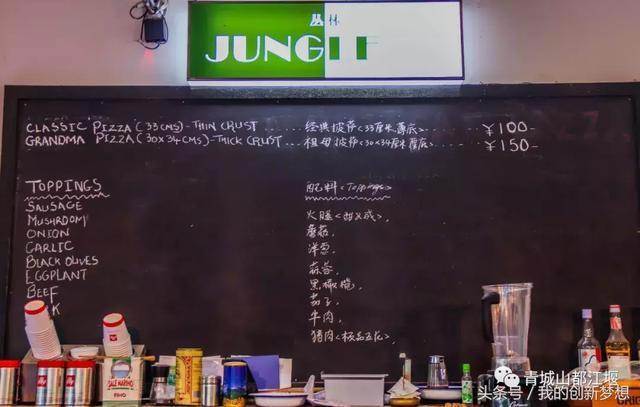 丛林
JUNGLE
CLASSIC PIZZA (33CMS) - THIN CRUST .... 经典披萨<33厘米薄底>..... ¥100-
GRANDMA PIZZA (30x34CMS) - THICK CRUST... 祖母披萨<30x34厘米厚底>..... ¥150-
TOPPINGS 配料<Toppings>
SAUSAGE
MUSHROOM 蘑菇.
ONION 洋葱.
GARLIC 蒜蓉.
BLACK OLIVES 黑橄榄.
EGGPLANT 茄子.
BEEF 牛肉.
K 猪肉
SALE MARINO
FINO
青城山都江堰
头条号/我的创新梦想